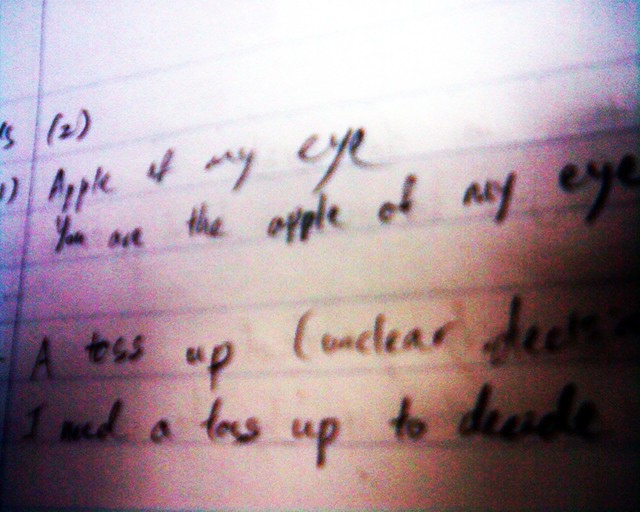 s (2)
1) Apple of my eye
You are the apple of my eye
A toss up (unclear decis
I need a toss up to decide